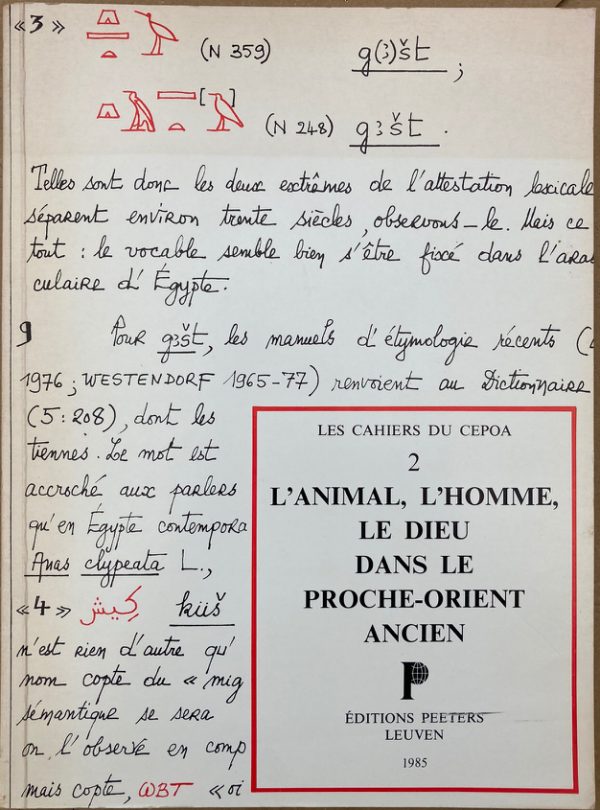 «3» (N 359) g(ꜣ)št ;
[ ] (N 248) gꜣšt .
Telles sont donc les deux extrêmes de l'attestation lexicale
séparent environ trente siècles, observons-le. Mais ce
tout : le vocable semble bien s'être fixé dans l'ara
culaire d'Égypte.
9 Pour gꜣšt, les manuels d'étymologie récents (
1976 ; WESTENDORF 1965-77) renvoient au Dictionnaire
(5:208), dont les
tiennes. Le mot est
accroché aux parlers
qu'en Égypte contempora
Anas clypeata L.,
«4» كيش kiiš
n'est rien d'autre qu'
nom copte du «mig
sémantique se sera
on l'observé en comp
mais copte, WBT «oi
LES CAHIERS DU CEPOA
2
L'ANIMAL, L'HOMME,
LE DIEU
DANS LE
PROCHE-ORIENT
ANCIEN
P
ÉDITIONS PEETERS
LEUVEN
1985